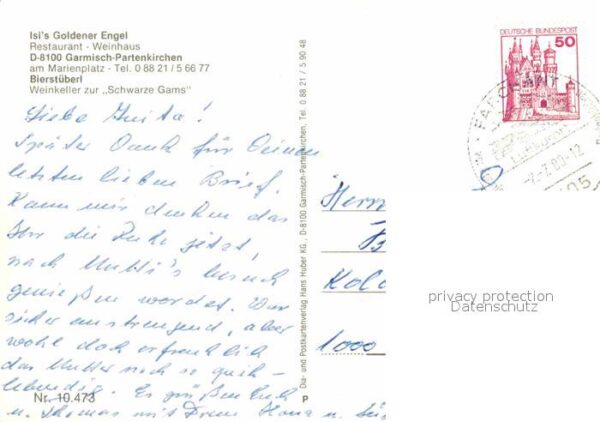 Isi's Goldener Engel
Restaurant · Weinhaus
D-8100 Garmisch-Partenkirchen
am Marienplatz - Tel. 0 88 21 / 5 66 77
Bierstüberl
Weinkeller zur „Schwarze Gams"
Liebe
Später Dank für Deinen
letzten lieben Brief.
Kann mir denken das
Ihr die Ruhe jetzt,
nach Mutti's besuch
genießen werdet. War
sicher anstrengend, aber
wohl doch erfreulich
das Mutter noch so quick-
lebendig. Es grüßen Euch
u. Thomas mit
Nr. 10.473
Dia- und Postkartenverlag Hans Huber KG, D-8100 Garmisch-Partenkirchen, Tel. 0 88 21 / 5 90 48
P
DEUTSCHE BUNDESPOST
50
FARCHANT
Herrn
1000
privacy protection
Datenschutz